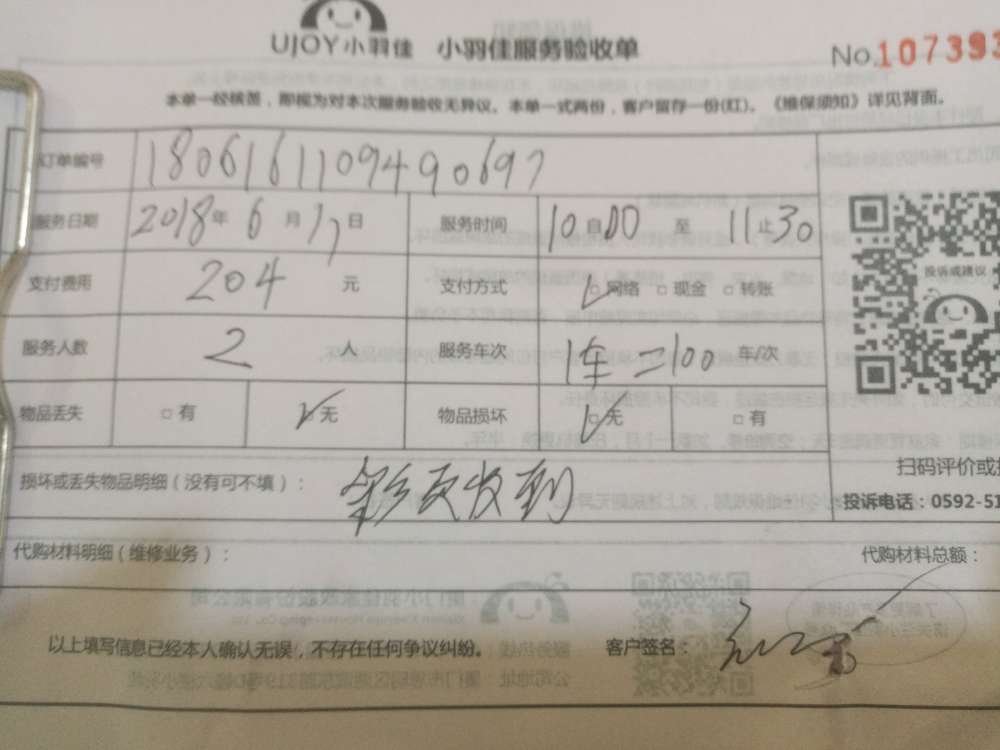 UJOY小羽佳 小羽佳服务验收单
No.107393
本单一经核签，即视为对本次服务验收无异议。本单一式两份，客户留存一份(红)。《维保须知》详见背面。
订单编号 1806161109490697
服务日期 2018年6月17日 服务时间 10自00至11止30
支付费用 204元 支付方式 □网络 □现金 □转账
服务人数 2人 服务车次 1车=100车/次
物品丢失 □有 □无 物品损坏 □无 □有
投诉或建议
扫码评价或
损坏或丢失物品明细（没有可不填）： 彩页收到
投诉电话：0592-51
代购材料明细（维修业务）： 代购材料总额：
以上填写信息已经本人确认无误，不存在任何争议纠纷。 客户签名：